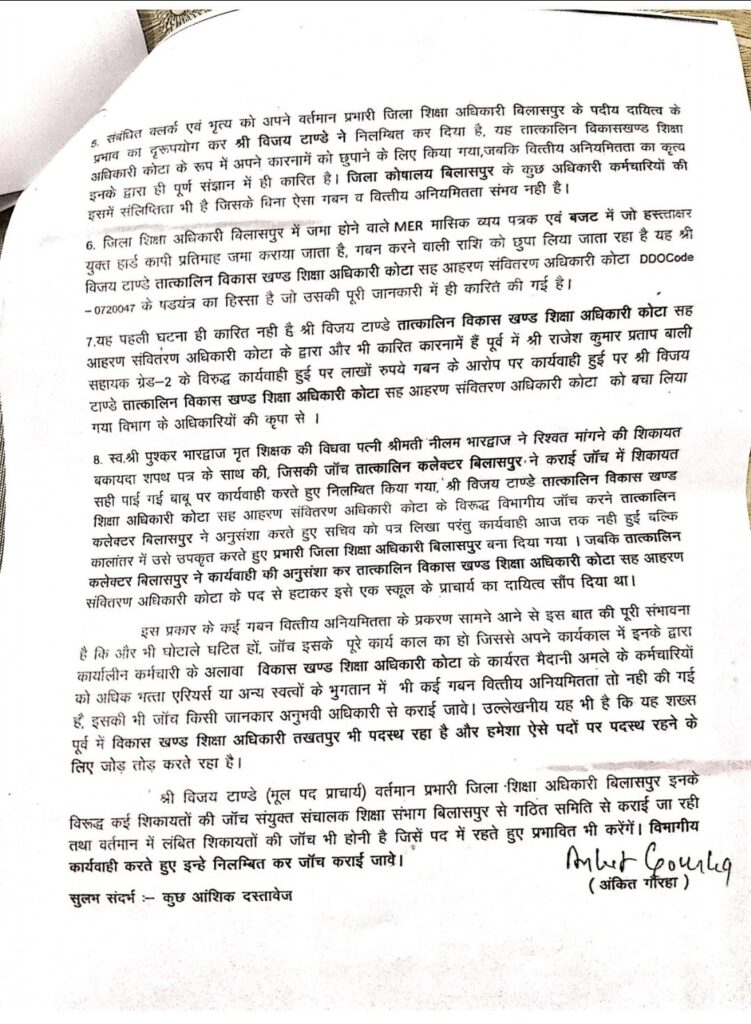 5. संबंधित क्लर्क एवं भृत्य को अपने वर्तमान प्रभारी जिला शिक्षा अधिकारी बिलासपुर के पदीय दायित्व के
प्रभाव का दुरूपयोग कर श्री विजय टाण्डे ने निलम्बित कर दिया है, यह तात्कालिन विकासखण्ड शिक्षा
अधिकारी कोटा के रूप में अपने कारनामें को छुपाने के लिए किया गया,जबकि वित्तीय अनियमितता का कृत्य
इनके द्वारा ही पूर्ण संज्ञान में ही कारित है। जिला कोषालय बिलासपुर के कुछ अधिकारी कर्मचारियों की
इसमें संलिप्तिता भी है जिसके विना ऐसा गबन व वित्तीय अनियमितता संभव नही है।
6. जिला शिक्षा अधिकारी बिलासपुर में जमा होने वाले MER मासिक व्यय पत्रक एवं बजट में जो हस्त्ताक्षर
युक्त हार्ड कापी प्रतिमाह जमा कराया जाता है, गबन करने वाली राशि को छुपा लिया जाता रहा है यह श्री
विजय टाण्डे तात्कालिन विकास खण्ड शिक्षा अधिकारी कोटा सह आहरण संवितरण अधिकारी कोटा DDOCode
– 0720047 के षडयंत्र का हिस्सा है जो उसकी पूरी जानकारी में ही कारित की गई है।
7.यह पहली घटना ही कारित नही है श्री विजय टाण्डे तात्कालिन विकास खण्ड शिक्षा अधिकारी कोटा सह
आहरण संवितरण अधिकारी कोटा के द्वारा और भी कारित कारनामें हैं पूर्व में श्री राजेश कुमार प्रताप बाली
सहायक ग्रेड–2 के विरुद्ध कार्यवाही हुई पर लाखों रुपये गबन के आरोप पर कार्यवाही हुई पर श्री विजय
टाण्डे तात्कालिन विकास खण्ड शिक्षा अधिकारी कोटा सह आहरण संवितरण अधिकारी कोटा को बचा लिया
गया विभाग के अधिकारियों की कृपा से ।
8. स्व.श्री पुष्कर भारद्वाज मृत शिक्षक की विधवा पत्नी श्रीमती नीलम भारद्वाज ने रिश्वत मांगने की शिकायत
बकायदा शपथ पत्र के साथ की, जिसकी जॉच तात्कालिन कलेक्टर बिलासपुर ने कराई जॉच में शिकायत
सही पाई गई बाबू पर कार्यवाही करते हुए निलम्बित किया गया, श्री विजय टाण्डे तात्कालिन विकास खण्ड
शिक्षा अधिकारी कोटा सह आहरण संवितरण अधिकारी कोटा के विरुद्ध विभागीय जॉच करने तात्कालिन
कलेक्टर बिलासपुर ने अनुसंशा करते हुए सचिव को पत्र लिखा परंतु कार्यवाही आज तक नही हुई बल्कि
कालांतर में उसे उपकृत करते हुए प्रभारी जिला शिक्षा अधिकारी बिलासपुर बना दिया गया । जबकि तात्कालिन
कलेक्टर बिलासपुर ने कार्यवाही की अनुसंशा कर तात्कालिन विकास खण्ड शिक्षा अधिकारी कोटा सह आहरण
संवितरण अधिकारी कोटा के पद से हटाकर इसे एक स्कूल के प्राचार्य का दायित्व सौंप दिया था।
इस प्रकार के कई गबन वित्तीय अनियमितता के प्रकरण सामने आने से इस बात की पूरी संभावना
है कि और भी घोटाले घटित हों, जॉच इसके पूरे कार्य काल का हो जिससे अपने कार्यकाल में इनके द्वारा
कार्यालीन कर्मचारी के अलावा विकास खण्ड शिक्षा अधिकारी कोटा के कार्यरत मैदानी अमले के कर्मचारियों
को अधिक भत्ता एरियर्स या अन्य स्वत्वों के भुगतान में भी कई गबन वित्तीय अनियमितता तो नही की गई
हैं, इसकी भी जॉच किसी जानकार अनुभवी अधिकारी से कराई जावे। उल्लेखनीय यह भी है कि यह शख्स
पूर्व में विकास खण्ड शिक्षा अधिकारी तखतपुर भी पदस्थ रहा है और हमेशा ऐसे पदों पर पदस्थ रहने के
लिए जोड़ तोड़ करते रहा है।
श्री विजय टाण्डे (मूल पद प्राचार्य) वर्तमान प्रभारी जिला शिक्षा अधिकारी बिलासपुर इनके
विरूद्ध कई शिकायतों की जॉच संयुक्त संचालक शिक्षा संभाग बिलासपुर से गठित समिति से कराई जा रही
तथा वर्तमान में लंबित शिकायतों की जॉच भी होनी है जिसें पद में रहते हुए प्रभावित भी करेंगें। विमागीय
कार्यवाही करते हुए इन्हे निलम्बित कर जॉच कराई जावे।
Ankit Gouraha
( अंकित गौरहा )
सुलभ संदर्भ :– कुछ आंशिक दस्तावेज